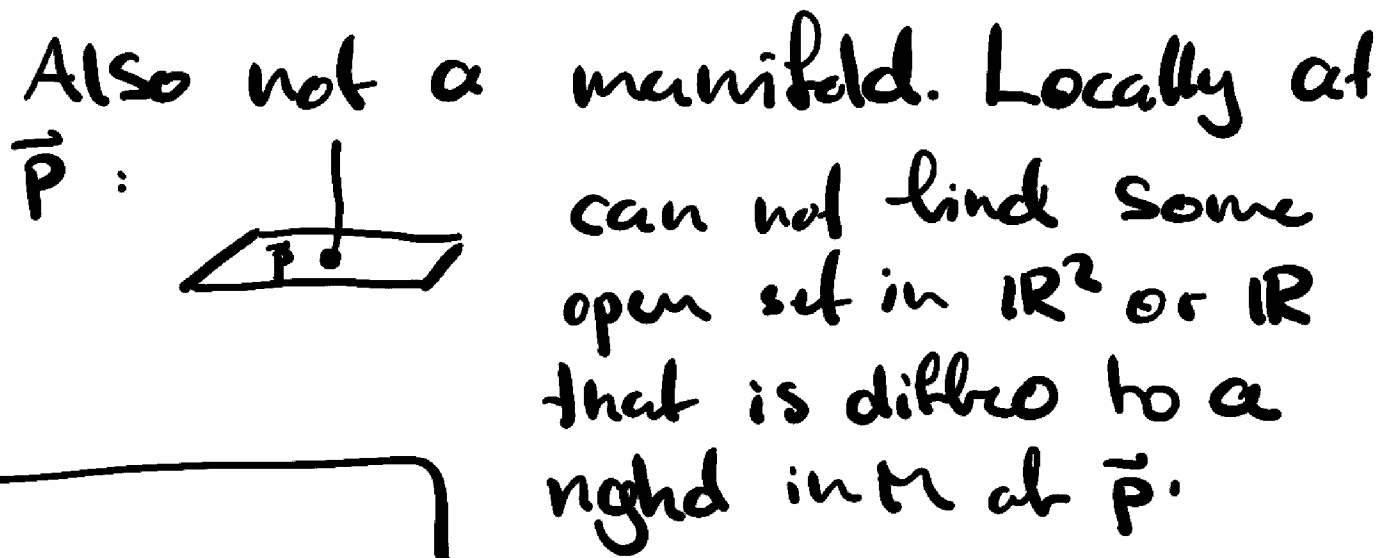 Also not a manifold. Locally at
p⃗ :
can not find some
p⃗
open set in ℝ² or ℝ
that is diffeo to a
nghd in M at p⃗.